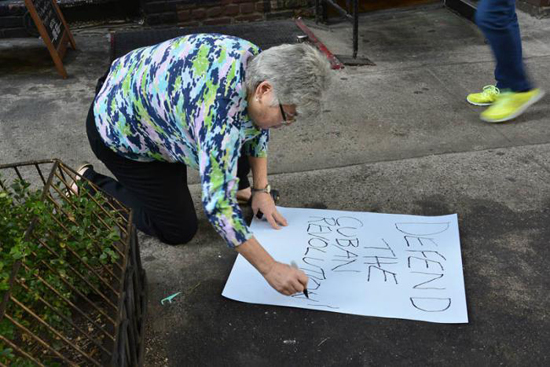 DEFEND
THE
CUBAN
REVOLUTION